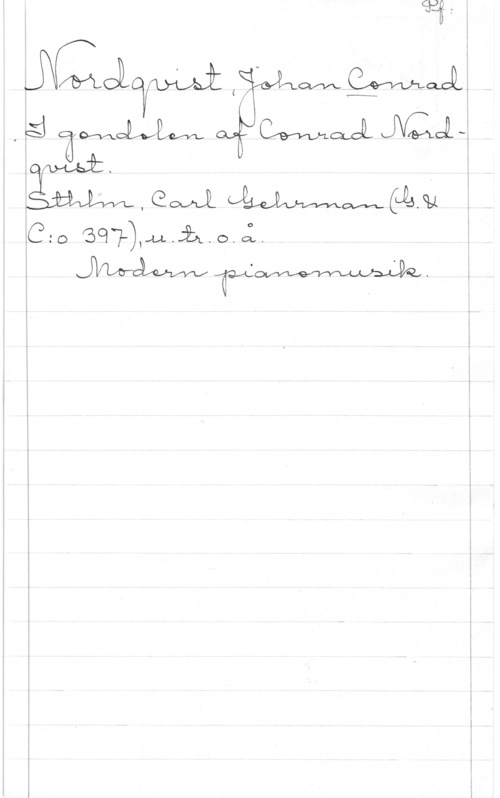 Pf.
Nordqvist, Johan Conrad
I gondolen af Conrad Nord-
qvist.
Sthlm, Carl Gehrman (G. &
C:o 397), u. tr. o. å.
Modern pianomusik.